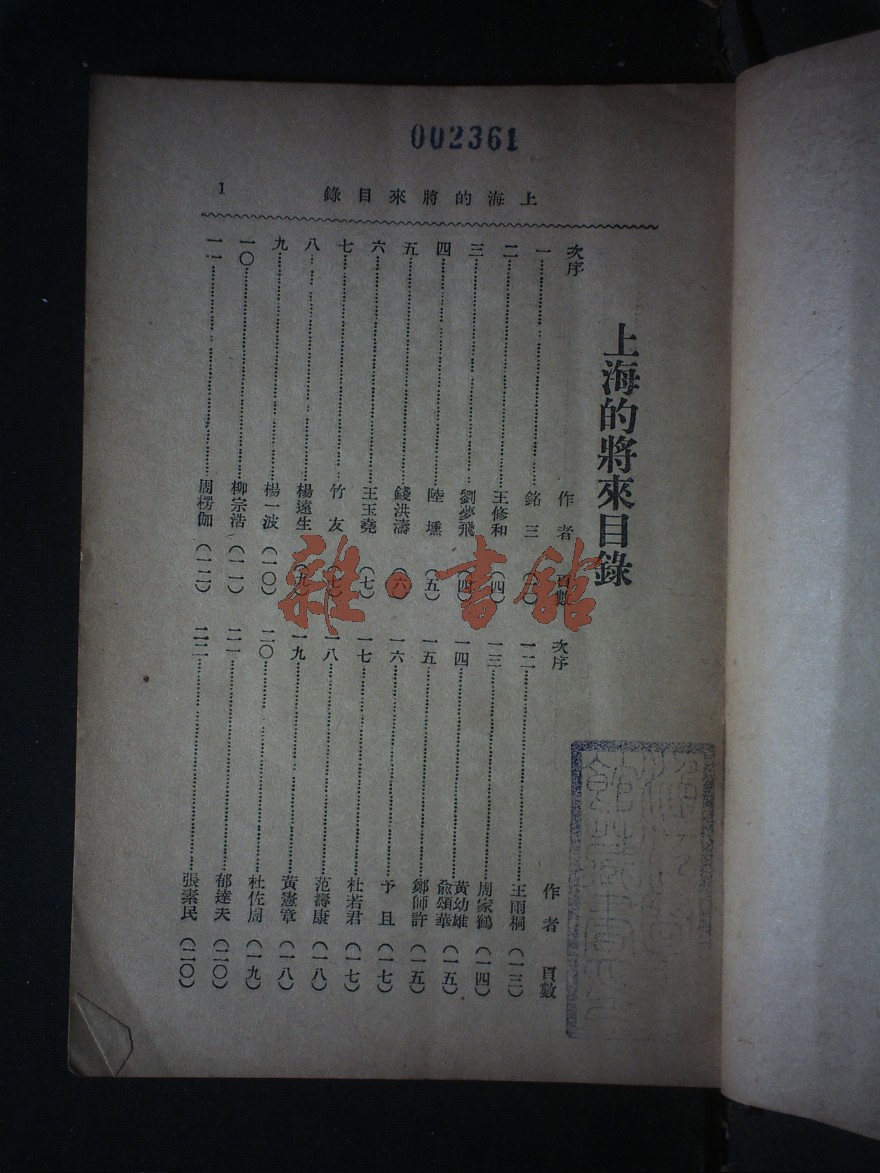 002361
上海的將來目錄
1
上海的將來目錄
次序 作者 頁數
一 銘三
二 王修和 (四)
三 劉夢飛 (四)
四 陸壎 (五)
五 錢洪濤 (六)
六 王玉堯 (七)
七 竹友
八 楊遠生 (九)
九 楊一波 (一〇)
一〇 柳宗浩 (一一)
一一 周楞伽 (一二)
次序 作者 頁數
一二 王雨桐 (一三)
一三 周家鶴 (一四)
一四 黃幼雄 俞頌華 (一五)
一五 鄭師許 (一五)
一六 予且 (一七)
一七 杜若君 (一七)
一八 范壽康 (一八)
一九 黃憲章 (一八)
二〇 杜佐周 (一九)
二一 郁達夫 (二〇)
二二 張素民 (二〇)
雜·書館